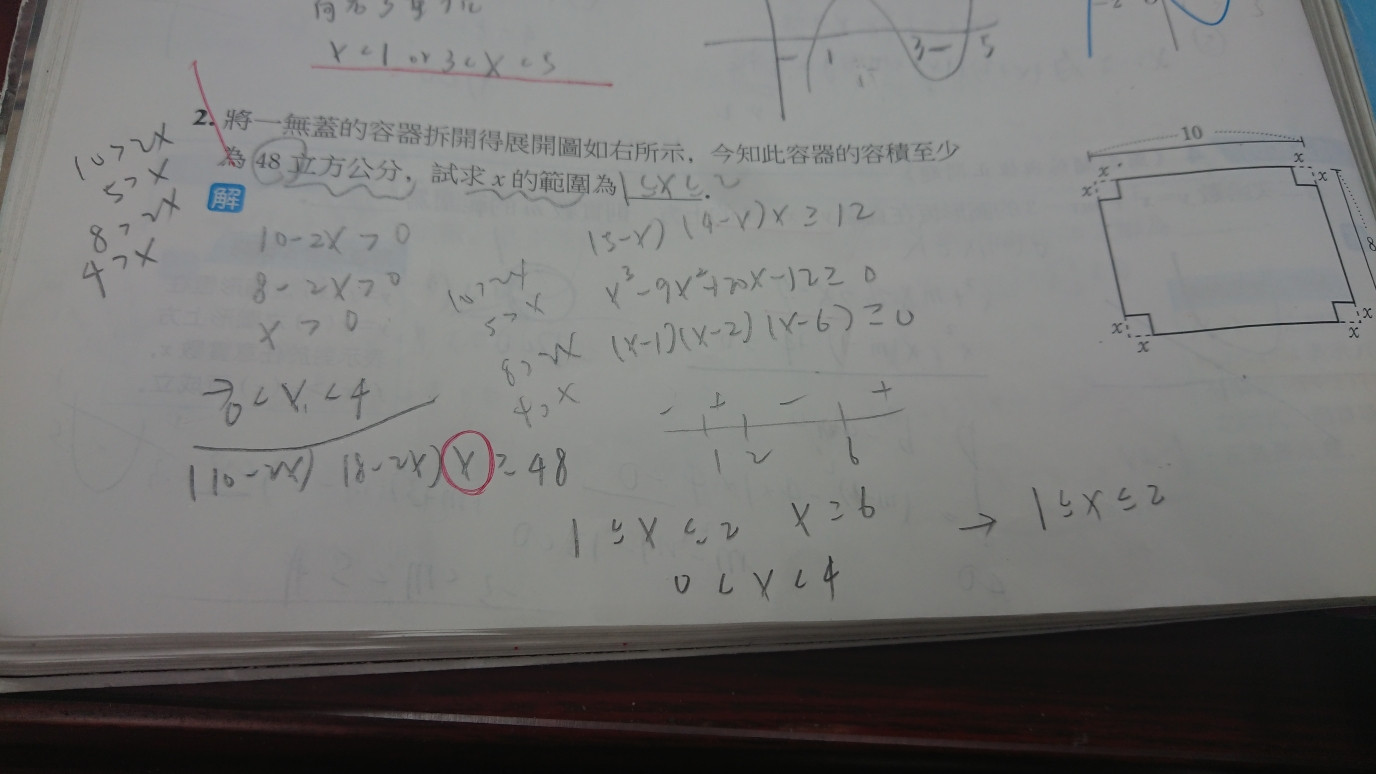 x<1 or 3<x<5
1 3 5
2. 將一無蓋的容器拆開得展開圖如右所示，今知此容器的容積至少
為48立方公分，試求x的範圍為1≤x≤2.
解
10>2x
5>x
8>2x
4>x
10-2x>0
8-2x>0
x>0
→0<x<4
(10-2x)(8-2x)x≥48
10>2x
5>x
8>2x
4>x
(5-x)(4-x)x≥12
x³-9x²+20x-12≥0
(x-1)(x-2)(x-6)≥0
- + - +
1 2 6
1≤x≤2 x≥6 → 1≤x≤2
0<x<4
10
8
x x x x
x x x x